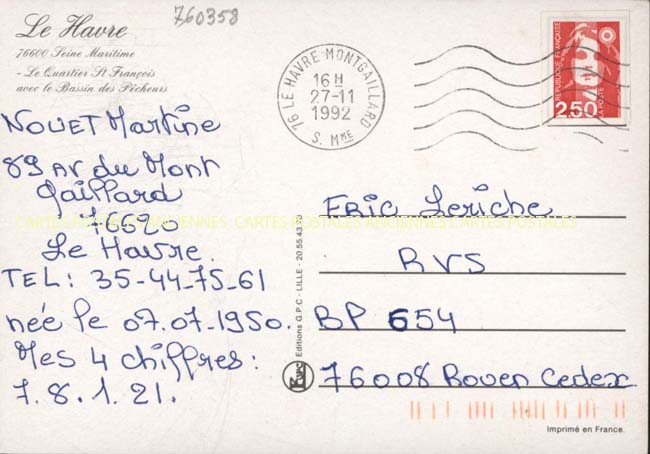 760358
Le Havre
76600 Seine Maritime
- Le Quartier St François
avec le Bassin des Pêcheurs
76 LE HAVRE-MONTGAILLARD
16 H
27-11
1992
S. MME
REPUBLIQUE FRANÇAISE
2,50
LA POSTE
NOUET Martine
89 AV du Mont
Gaillard
76620
Le Havre.
TEL: 35-44-75-61
née le 07.07-1950.
Mes 4 chiffres:
7.8.1.21.
CARTES POSTALES ANCIENNES CARTES POSTALES ANCIENNES CARTES POSTALES
Editions G.P.C - LILLE - 20 55 43 90
Eric Leriche
RVS
BP 654
76008 Rouen Cedex
Imprimé en France.